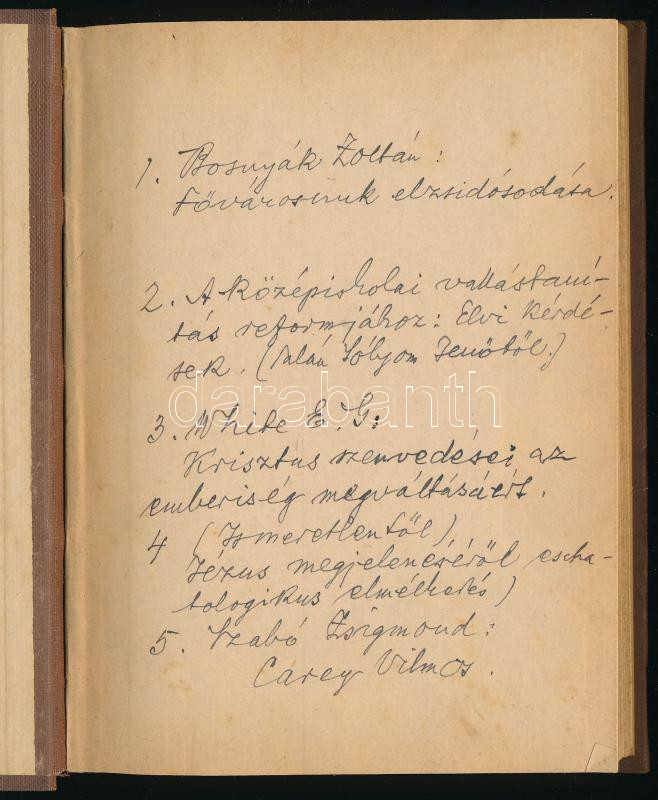 1. Bosnyák Zoltán:
Fővárosunk elzsidósodása.
2. A középiskolai vallástaní-
tás reformjához: Elvi kérdé-
sek. (Talán Sólyom Jenőtől.)
darabanth
3. White E. G:
Krisztus szenvedései az
emberiség megváltásáért.
4 (Ismeretlentől)
Jézus megjelenéséről escha-
tologikus elmélkedés)
5. Szabó Zsigmond:
Carey Vilmos.